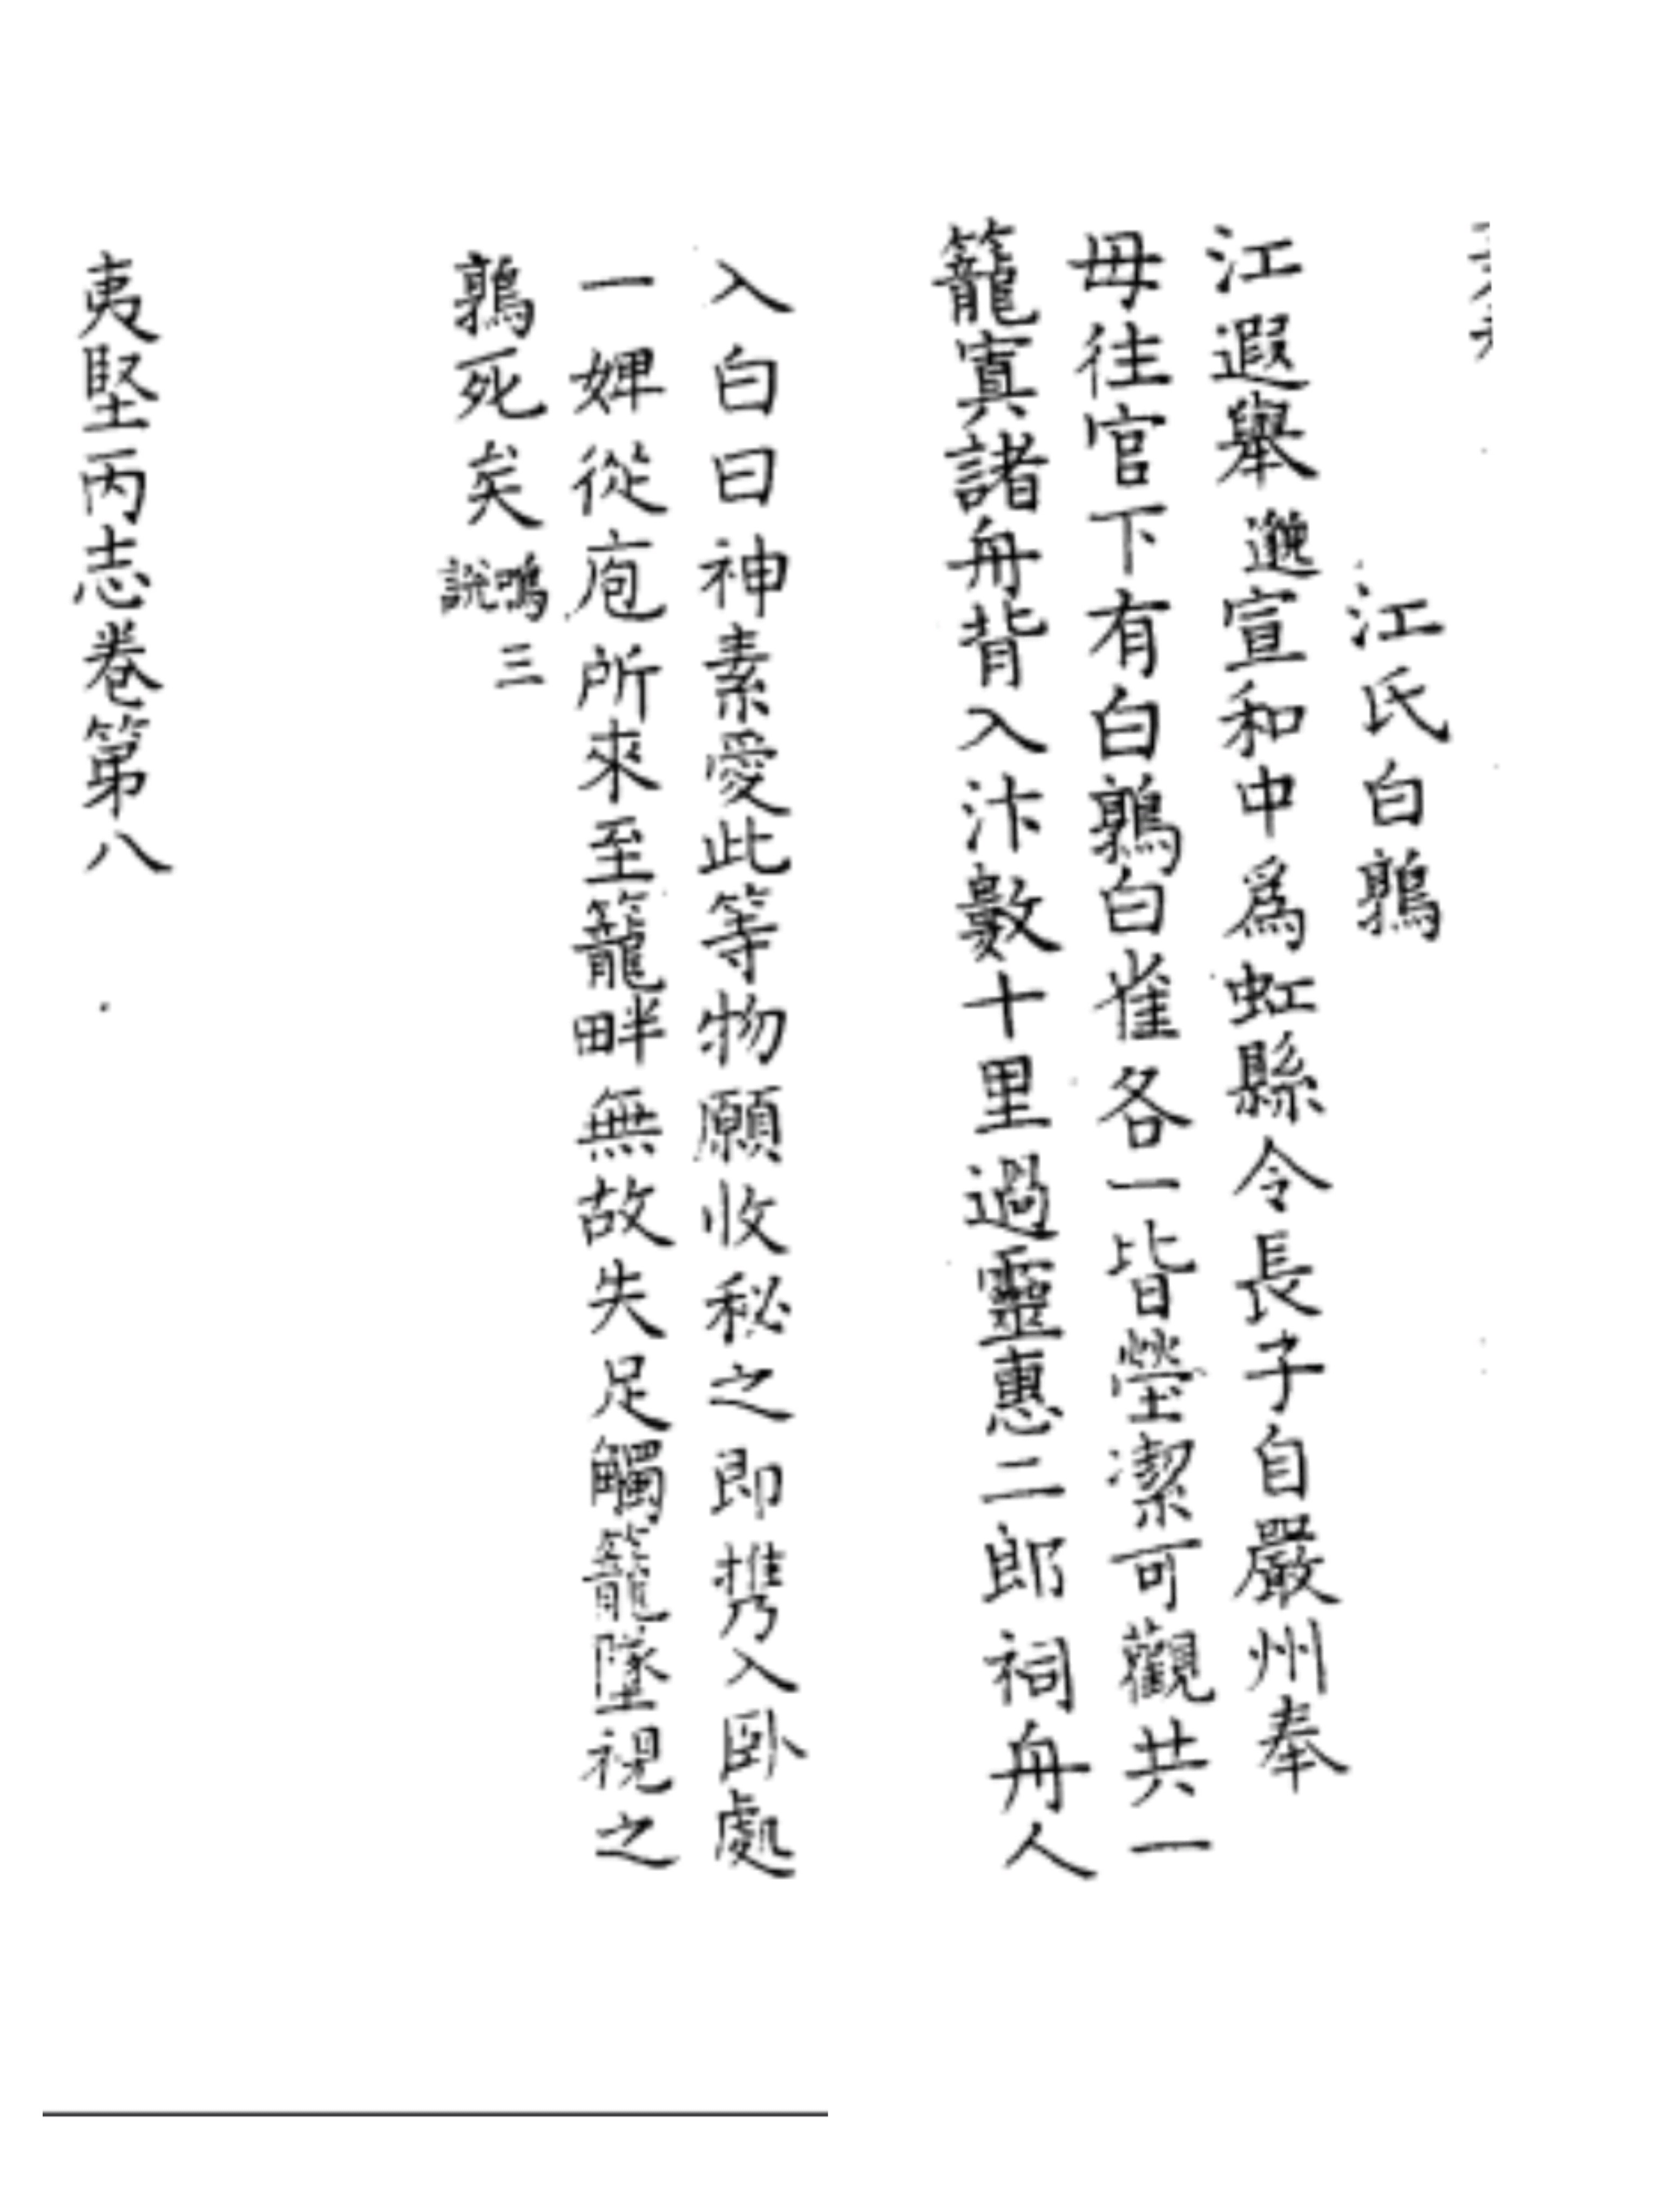 江氏白鶉
江遐舉邈宣和中爲虹縣令長子自嚴州奉
毋往官下有白鶉白雀各一皆瑩潔可觀共一
籠寘諸舟背入汴數十里過靈惠二郎祠舟人
入白曰神素愛此等物願收秘之即携入卧處
一婢從庖所來至籠畔無故失足觸籠墜視之
鶉死矣
三
鳴
說
夷堅丙志卷第八